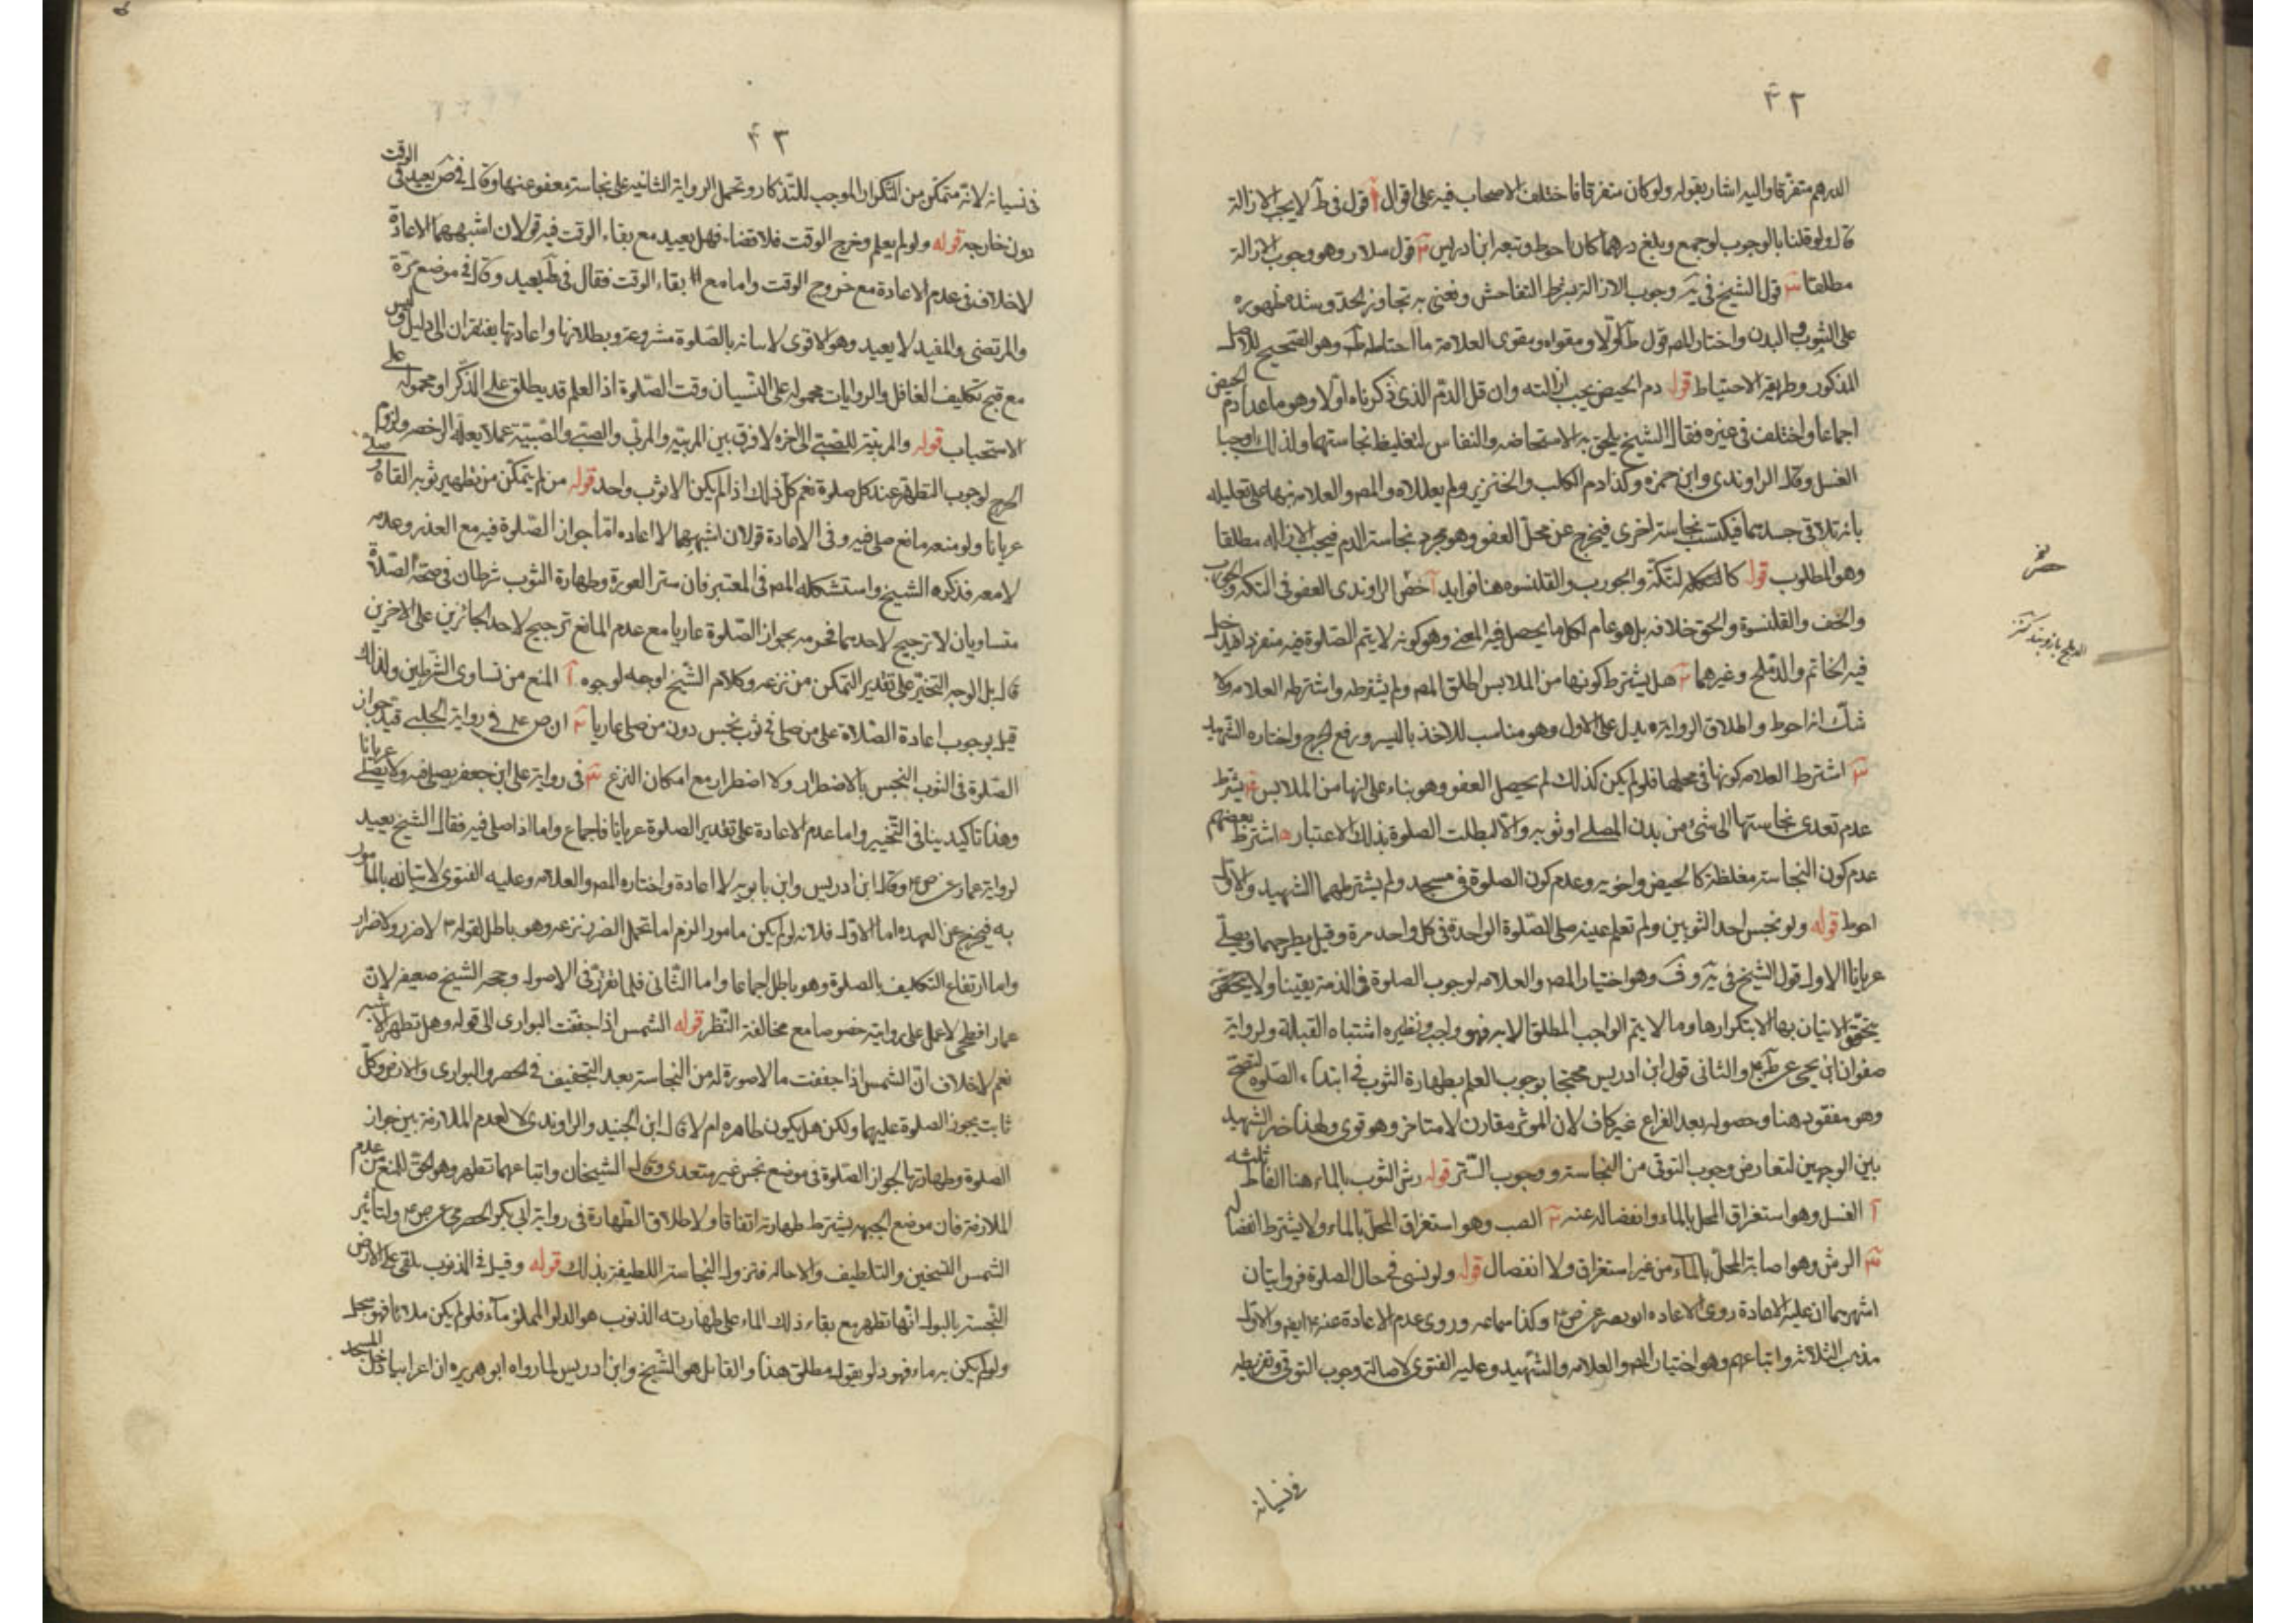 ٤٢
الدرهم متفرقا واليه اشار بقوله ولو كان متفرقا فاختلف الاصحاب فيه على اقوال آ قول في ط لا يجب الازالة
قال ولو قلنا بالوجوب لو جمع وبلغ درهما كان احوط وتبعه ابن ادريس ٢ قول سلار وهو وجوب الازالة
مطلقا ٣ قول الشيخ في يه وجوب الازالة بشرط التفاحش ونعني به تجاوز الحد وشدة ظهوره
على الثوب والبدن واختار المص قول ط اولا ومقواه ومقوى العلامة ما احتاطه ط وهو الصحيح للاصل
المذكور وطريقة الاحتياط قوله دم الحيض يجب ازالته وان قل الدم الذي ذكرناه اولا وهو ما عدا دم الحيض
اجماعا واختلف في غيره فقال الشيخ يلحق به الاستحاضه والنفاس لتغليظ نجاستهما ولذلك اوجبا
الغسل وقال الراوندي وابن حمزه وكذا دم الكلب والخنزير ولم يعللاه والمص والعلامه نبها على تعليله
بانه تلاقى جسدهما فيكتسب نجاسة اخرى فيخرج عن محل العفو وهو مجرد نجاسة الدم فيجب الازاله مطلقا
وهو المطلوب قوله كالتكه والجورب والقلنسوه هنا فوايد آ خص الراوندي العفو في التكه والجورب
والخف والقلنسوة والحق خلافه بل هو عام لكل ما يحصل فيه المعنى وهو كونه لا يتم الصلوة فيه منفردا فيدخل
فيه الخاتم والدملج وغيرهما ٢ هل يشترط كونها من الملابس اطلق المص ولم يشترطه واشترطه العلامه ولا
شك انه احوط واطلاق الروايه يدل على الاول وهو مناسب للاخذ باليسر ورفع الحرج واختاره الشهيد
٣ اشترط العلامه كونها في محلها فلو لم يكن كذلك لم يحصل العفو وهو بناء على انها من الملابس ٤ يشترط
عدم تعدي نجاستها الى شئ من بدن المصلي او ثوبه والا لبطلت الصلوة بذلك الاعتبار ه اشترط بعضهم
عدم كون النجاسة مغلظة كالحيض واخويه وعدم كون الصلوة في مسجد ولم يشترطهما الشهيد والاول
احوط قوله ولو نجس احد الثوبين ولم تعلم عينه صلى الصلوة الواحدة في كل واحد مرة وقيل يطرحهما ويصلي
عريانا الاول قول الشيخ في يه وف وهو اختيار المص والعلامه لوجوب الصلوة في الذمة يقينا ولا يتحقق
يتحقق الاتيان بها الا بتكرارها وما لا يتم الواجب المطلق الا به فهو واجب ونظيره اشتباه القبلة ولرواية
صفوان بن يحيى عن والثاني قول ابن ادريس محتجا بوجوب العلم بطهارة الثوب في ابتداء الصلوة لتصح
وهو مفقود هنا وحصوله بعد الفراغ غير كاف لان الموثر مقارن لا متاخر وهو قوي ولهذا خير الشهيد
بين الوجهين لتعارض وجوب التوقى من النجاسة ووجوب الستر قوله رش الثوب بالماء هنا الفاظ ثلثه
آ الغسل وهو استغراق المحل بالماء وانفصاله عنه ٢ الصب وهو استغراق المحل بالماء ولا يشترط انفصاله
٣ الرش وهو اصابة المحل بالماء من غير استغراق ولا انفصال قوله ولو نسي في حال الصلوة فروايتان
اشهرهما ان عليه الاعادة روى الاعاده ابو بصير عن ص ع وكذا سماعه وروى عدم الاعادة عنه ع ايض والاول
مذهب الثلاثة واتباعهم وهو اختيار المص والعلامه والشهيد وعليه الفتوى لاصالة وجوب التوقى وتفريطه
في نسيانه
٤٣
في نسيانه لانه متمكن من التكرار الموجب للتذكار وتحمل الرواية الثانيه على نجاسة معفو عنها وقال في ص يعيد في الوقت
دون خارجه قوله ولو لم يعلم وخرج الوقت فلا قضاء فهل يعيد مع بقاء الوقت فيه قولان اشبههما الاعادة
لا خلاف في عدم الاعادة مع خروج الوقت واما مع بقاء الوقت فقال في ط يعيد وقال في موضع
والمرتضى والمفيد لا يعيد وهو الاقوى لاتيانه بالصلوة مشروعة وبطلانها واعادتها يفتقران الى دليل وليس
مع قبح تكليف الغافل والروايات محموله على النسيان وقت الصلوة اذ العلم قد يطلق على الذكر او محموله على
الاستحباب قوله والمربية للصبي الى اخره لا فرق بين المربيه والمربي والصبي والصبية عملا بعلة الرخصة ولزوم
الحرج لوجوب التطهر عند كل صلوة نعم كل ذلك اذا لم يكن الا ثوب واحد قوله من لم يتمكن من تطهير ثوبه القاه وصلى
عريانا ولو منعه مانع صلى فيه وفي الاعادة قولان اشبههما لا اعاده اما جواز الصلوة فيه مع العذر وعدمه
لا معه فذكره الشيخ واستشكله المص في المعتبر فان ستر العورة وطهارة الثوب شرطان في صحة الصلاة
متساويان لا ترجيح لاحدهما فحرمه بجواز الصلوة عاريا مع عدم المانع ترجيح لاحد الجائزين على الاخرين
قال بل الوجه التخير على تقدير التمكن من نزعه وكلام الشيخ اوجه لوجوه آ المنع من تساوي الشرطين ولذلك
قيل بوجوب اعادة الصلاة على من صلى في ثوب نجس دون من صلى عاريا ٢ ان ص ع في رواية الحلبي قيد جواز
الصلوة في الثوب النجس بالاضطرار ولا اضطرار مع امكان النزع ٣ في رواية علي ابن جعفر يصلي فيه ولا يصلي عريانا
وهذا تاكيد ينافي التخيير واما عدم الاعادة على تقدير الصلوة عريانا فاجماع واما اذا صلى فيه فقال الشيخ يعيد
لرواية عمار عن ص ع وقال ابن ادريس وابن بابويه لا اعادة واختاره المص والعلامه وعليه الفتوى لاتيانه بالمأمور
به فيخرج عن العهده اما الاول فلانه لو لم يكن مامور الزم اما تحمل الضرر بنزعه وهو باطل لقوله لا ضرر ولا ضرار
واما ارتفاع التكليف بالصلوة وهو باطل اجماعا واما الثاني فلما تقرر في الاصول وحجة الشيخ ضعيفه لان
عمار افطحي لا عمل على روايته خصوصا مع مخالفة النظر قوله الشمس اذا جففت البواري الى قوله وهل تطهر الاشبه
نعم لا خلاف ان الشمس اذا جففت ما لا صورة له من النجاسة بعد التجفيف في الحصر والبواري والارض وكل
ثابت يجوز الصلوة عليها ولكن هل يكون طاهره ام لا قال ابن الجنيد والراوندي لا لعدم الملازمة بين جواز
الصلوة وطهارتها لجواز الصلوة في موضع نجس غير متعدي وقال الشيخان واتباعهما تطهر وهو الحق للمنع من عدم
الملازمة فان موضع الجبهه يشترط طهارته اتفاقا ولاطلاق الطهارة في رواية ابي بكر الحضرمي عن ص ع ولتأثير
الشمس التسخين والتلطيف والاحاله فتزول النجاسة اللطيفة بذلك قوله وقيل في الذنوب يلقى على الارض
النجسة بالبول انها تطهر مع بقاء ذلك الماء على طهارته الذنوب هو الدلو المملو ماء فلو لم يكن ملانا فهو سجل
ولو لم يكن به ماء فهو دلو بقوله مطلق هذا والقائل هو الشيخ وابن ادريس لما رواه ابو هريره ان اعرابيا دخل المسجد